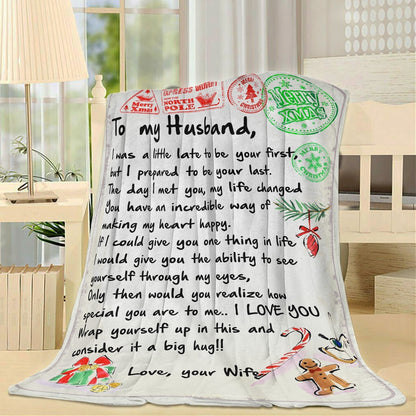 Merry Xmas
EXPRESS
NORTH POLE
MERRY CHRISTMAS
Merry XMAS
MERRY CHRISTMAS
To my Husband,
I was a little late to be your first,
but I prepared to be your last.
The day I met you, my life changed
You have an incredible way of
making my heart happy.
If I could give you one thing in life
I would give you the ability to see
yourself through my eyes,
Only then would you realize how
special you are to me.. I LOVE YOU
Wrap yourself up in this and
consider it a big hug!!
Love, your Wife